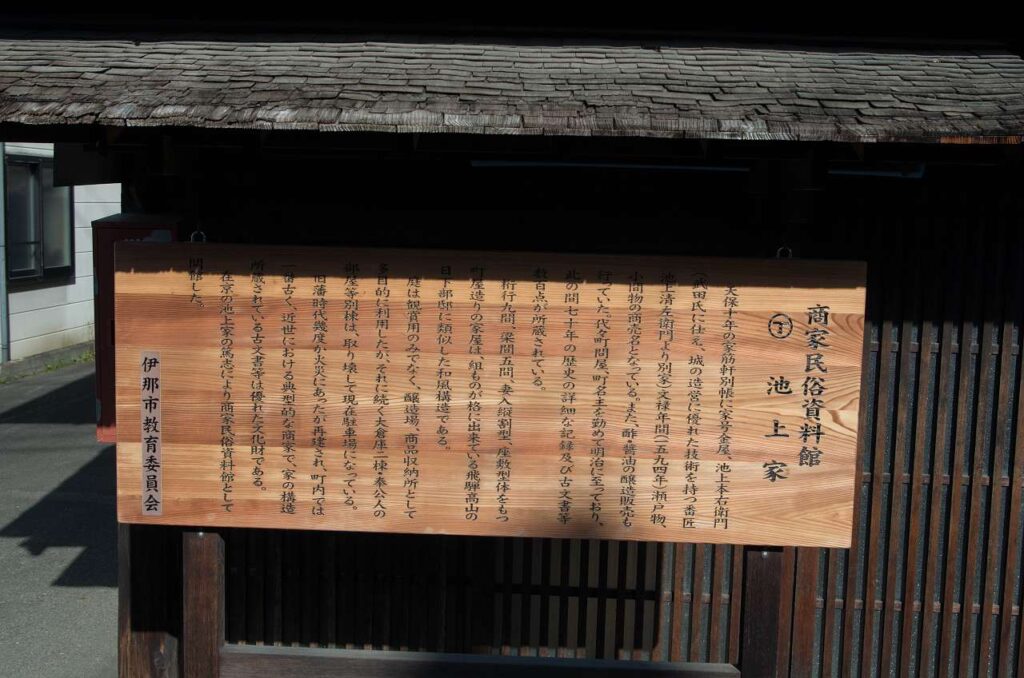 商家民俗資料館
池上家
天保十年の安筋軒別帳に家号金屋、池上本右衛門
(武田氏に仕え、城の造営に優れた技術を持つ番匠
池上清左衛門より別家)文禄年間(一五九四年)瀬戸物、
小間物の商売名となっている。また、酢・醤油の醸造販売も
行っていた。代々町問屋、町名主を勤めて明治に至っており、
此の間七十年の歴史の詳細な記録及び古文書等
数百点が所蔵されている。
桁行九間、梁間五間、妻入縦割型、座敷型体をもつ
町屋造りの家屋は、組ものが格に出来ている飛騨高山の
日下部邸に類似した和風構造である。
庭は観賞用のみでなく、醸造場、商品収納所として
多目的に利用したが、それに続く大倉庫二棟奉公人の
部屋等別棟は、取り壊して現在駐車場になっている。
旧藩時代幾度か火災にあったが再建され、町内では
一番古く、近世における典型的な商家で、家の構造
所蔵されている古文書等は優れた文化財である。
在京の池上家の篤志により商家民俗資料館として
開館した。
伊那市教育委員会